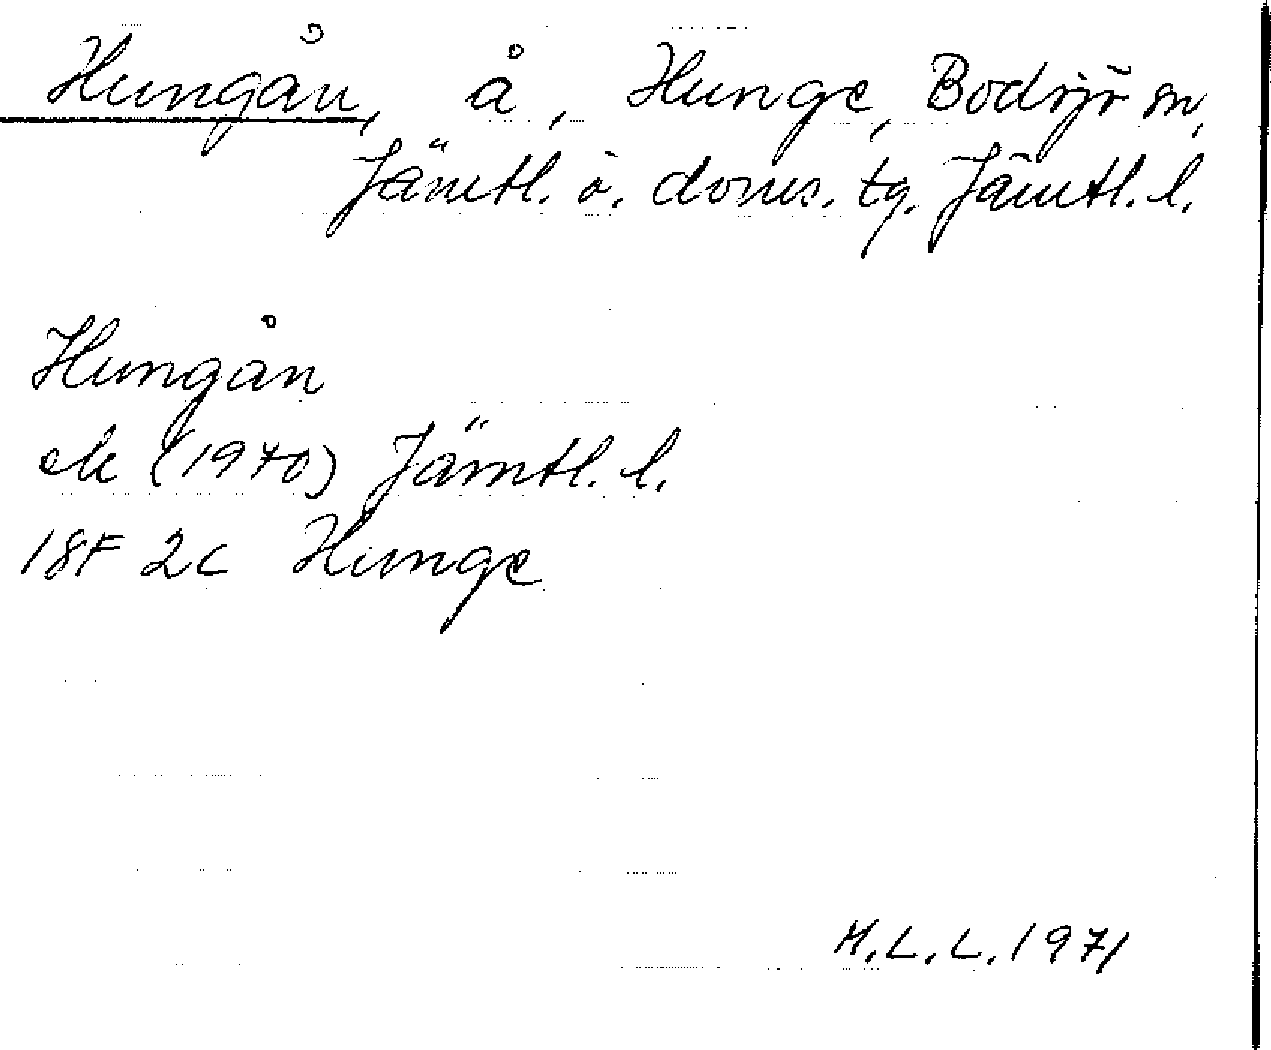 Hungån, å, Hunge, Bodsjö sn,
Jämtl. ö. doms. tg. Jämtl. l.
Hungån
ek (1970) Jämtl. l.
18F 2c Hunge
M.L.L. 1971